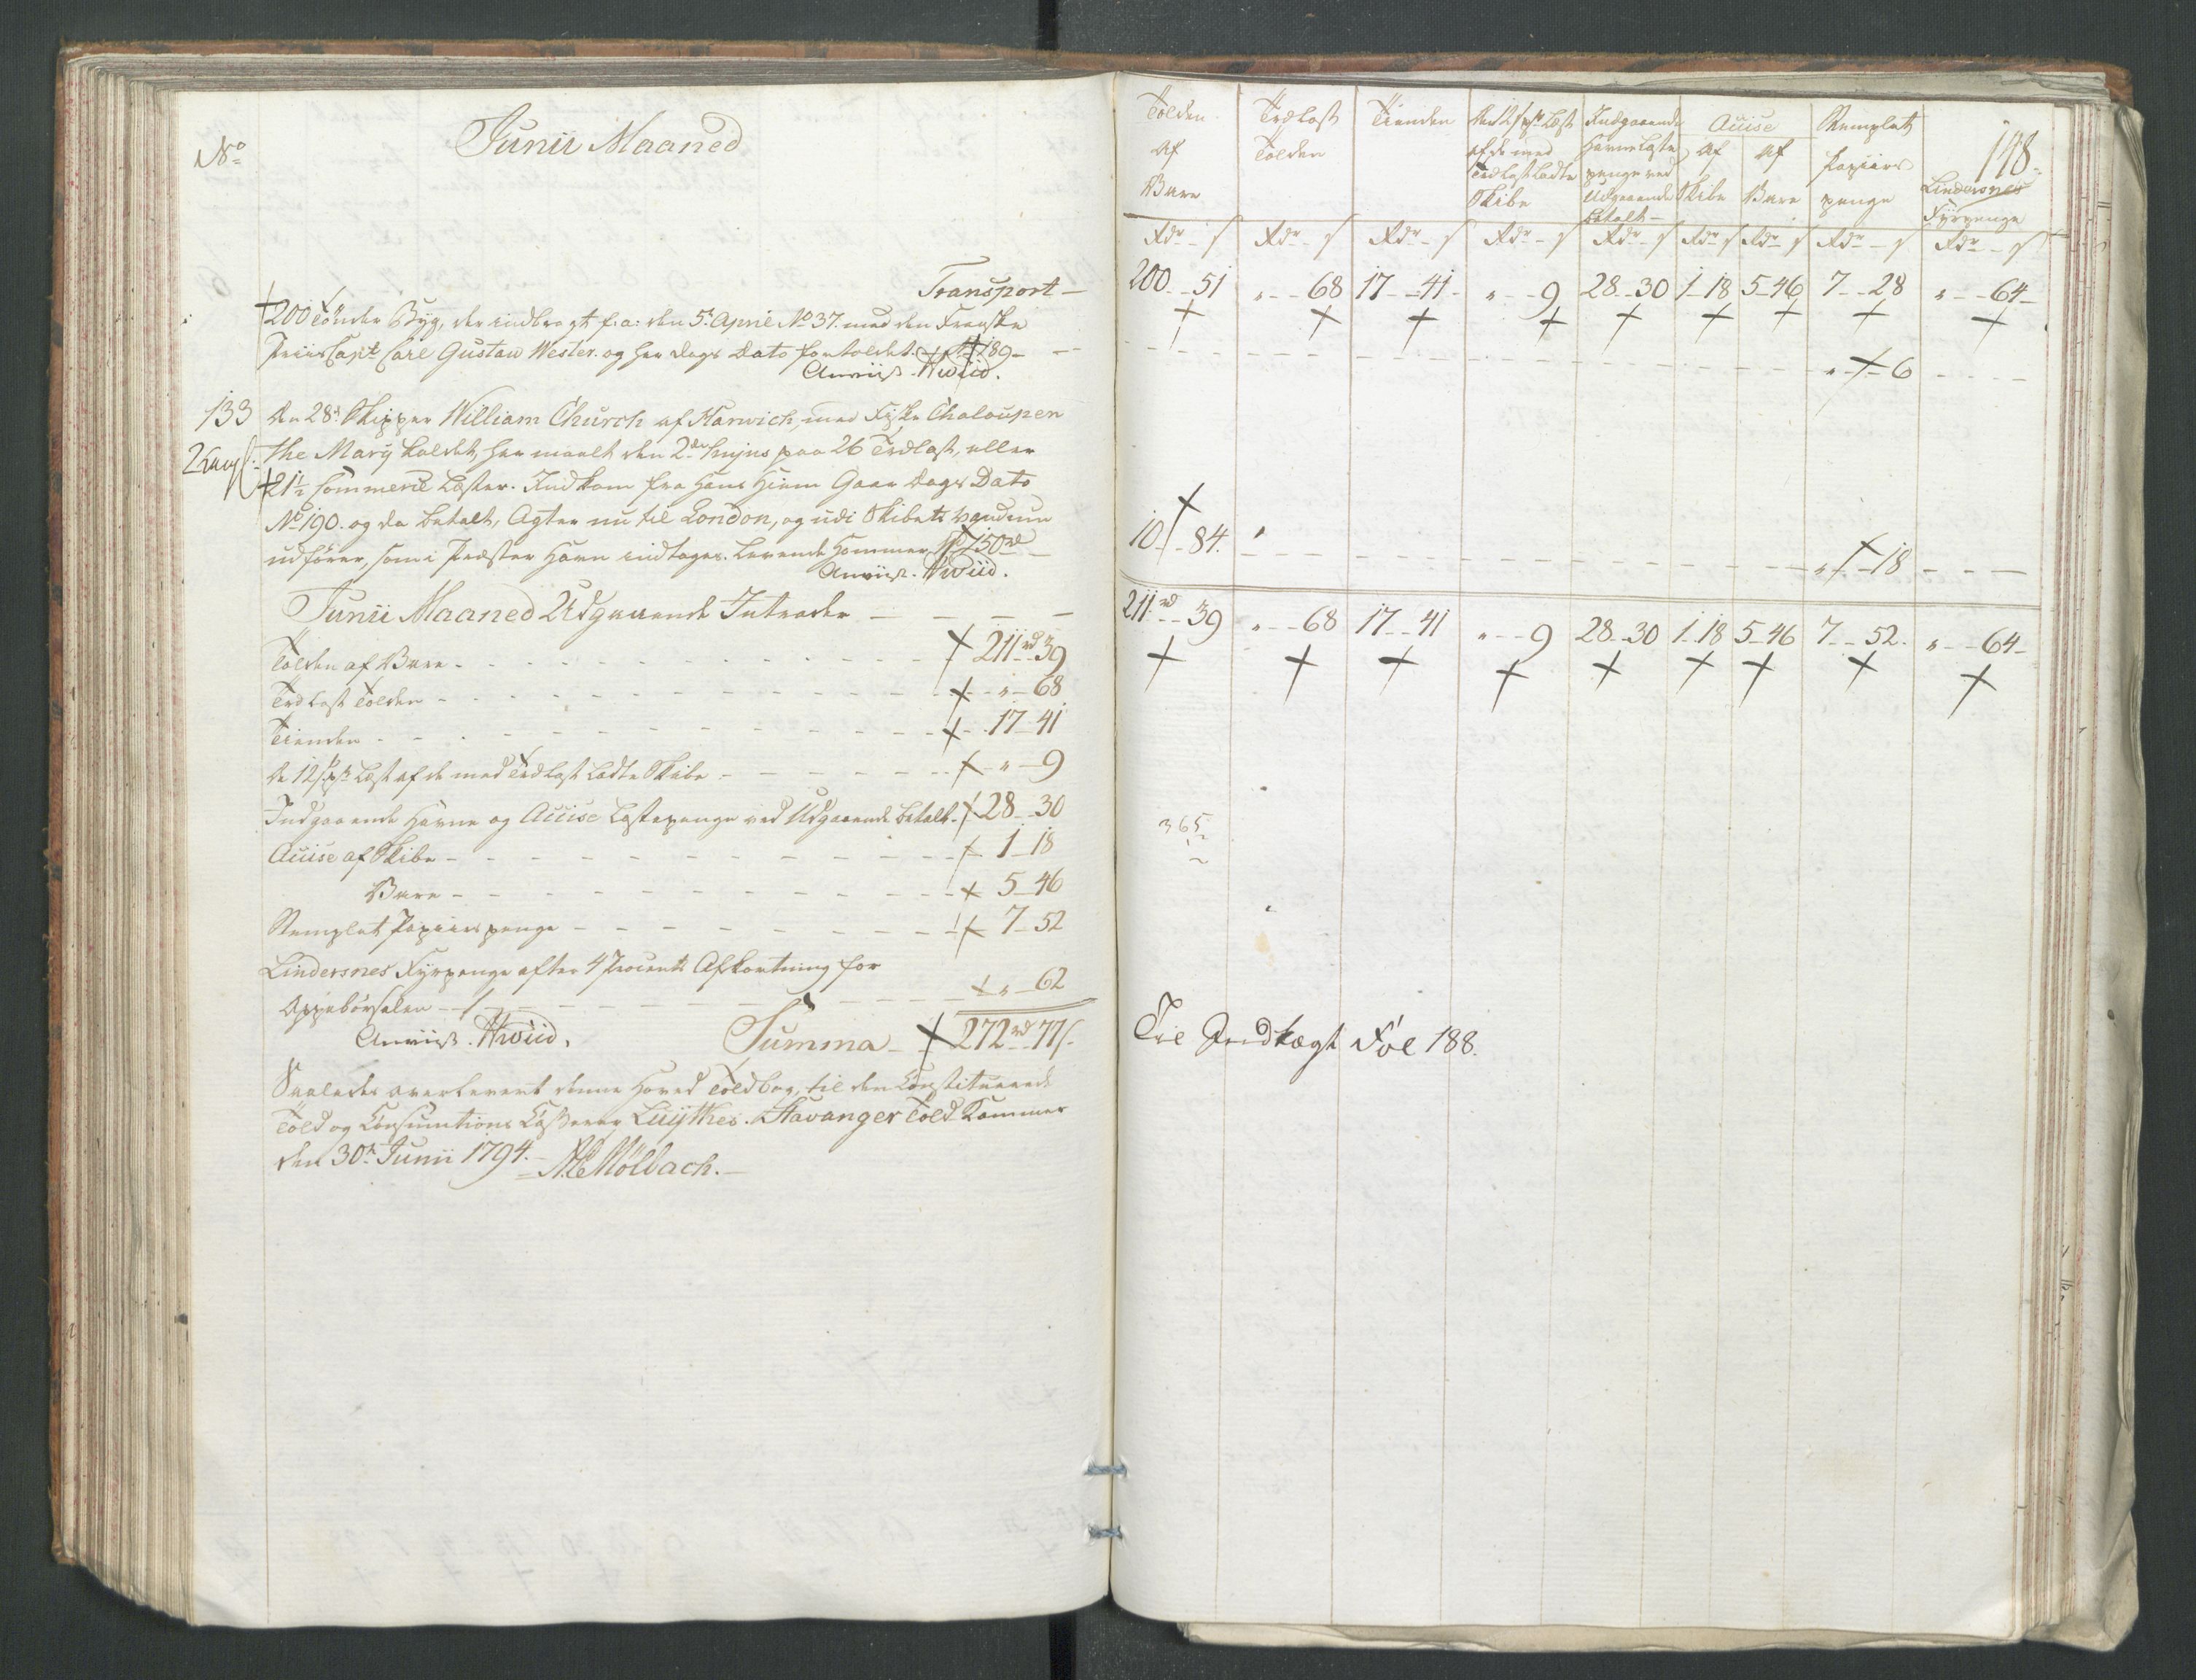 No
Junii Maaned
Transport
200 Tönder Byg, der indbragt f: a: den 5t April No 37. med den Franske
Priis Capt Carl Gustav Wester. og her dags Dato fortoldet. No 189
Anviist. Hwiid.
133 Den 28d Skipper William Church af Harwich, med Fiske Chaloupen
the Mary kaldet, her maalt den 2den hujus paa 26 Trælast, eller
21½ Commerce Læster. Indkom fra Hans Hiem Gaar Dags Dato
No 190. og da betalt, Agter nu til London, og udi Skibets
udfører, som i Præster Havn indtages. Levende Hommer 750rd
Anviist. Hwiid.
Junii Maaned Udgaaende Intrader
Tolden af Vare 211rd 39
Trælast Tolden " 68
Tienden 17 41
De 12 s pr Læst af de med Trælast Ladte Skibe " 9
Indgaaende Havne og Accise Lastepenge ved Udgaaende betalt 28 30
Accise af Skibe 1 18
Vare 5 46
Stemplet Papiirs penge 7 52
Lindersnes Fyrpenge efter 4 Procents Afkortning for
Oppebørselen " 62
Anviist. Hwiid. Summa 272rd 77s
Saaledes overleveret denne Hoved Toldbog, til den Constituerede
Told og Consumtions Casserer Luÿthes. Stavanger Told Kammer
den 30t Junii 1794.
Mölbach.
148.
Tolden af Vare
Trælast Tolden
Tienden
De 12 s pr Læst af de med Trælast Ladte Skibe
Indgaaende Havne Laste penge ved Udgaaende betalt
Accise
Af Skibe
Af Vare
Stemplet Papiirs penge
Lindersnes Fyrpenge
Rdr s Rdr s Rdr s Rdr s Rdr s Rdr s Rdr s Rdr s Rdr s
200 51 " 68 17 41 " 9 28 30 1 18 5 46 7 28 " 64
" 6
10 84 " 18
211rd 39 " 68 17 41 " 9 28 30 1 18 5 46 7 52 " 64
365
Til Indtægt Fol 188.